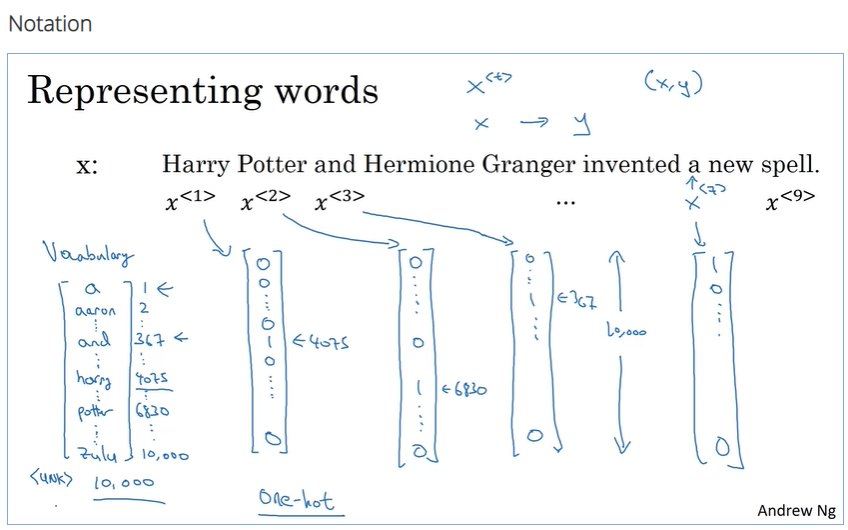 Notation
Representing words
x<t>
(x,y)
x → y
x: Harry Potter and Hermione Granger invented a new spell.
x<1> x<2> x<3> ... x<7> x<9>
Vocabulary
a 1 ←
aaron 2
and 367 ←
harry 4075
potter 6830
zulu 10,000
<UNK> 10,000
0
0
0
1 ← 4075
0
0
0
0
1 ← 6830
0
0
1 ← 367
0
10,000
1
0
0
One-hot
Andrew Ng